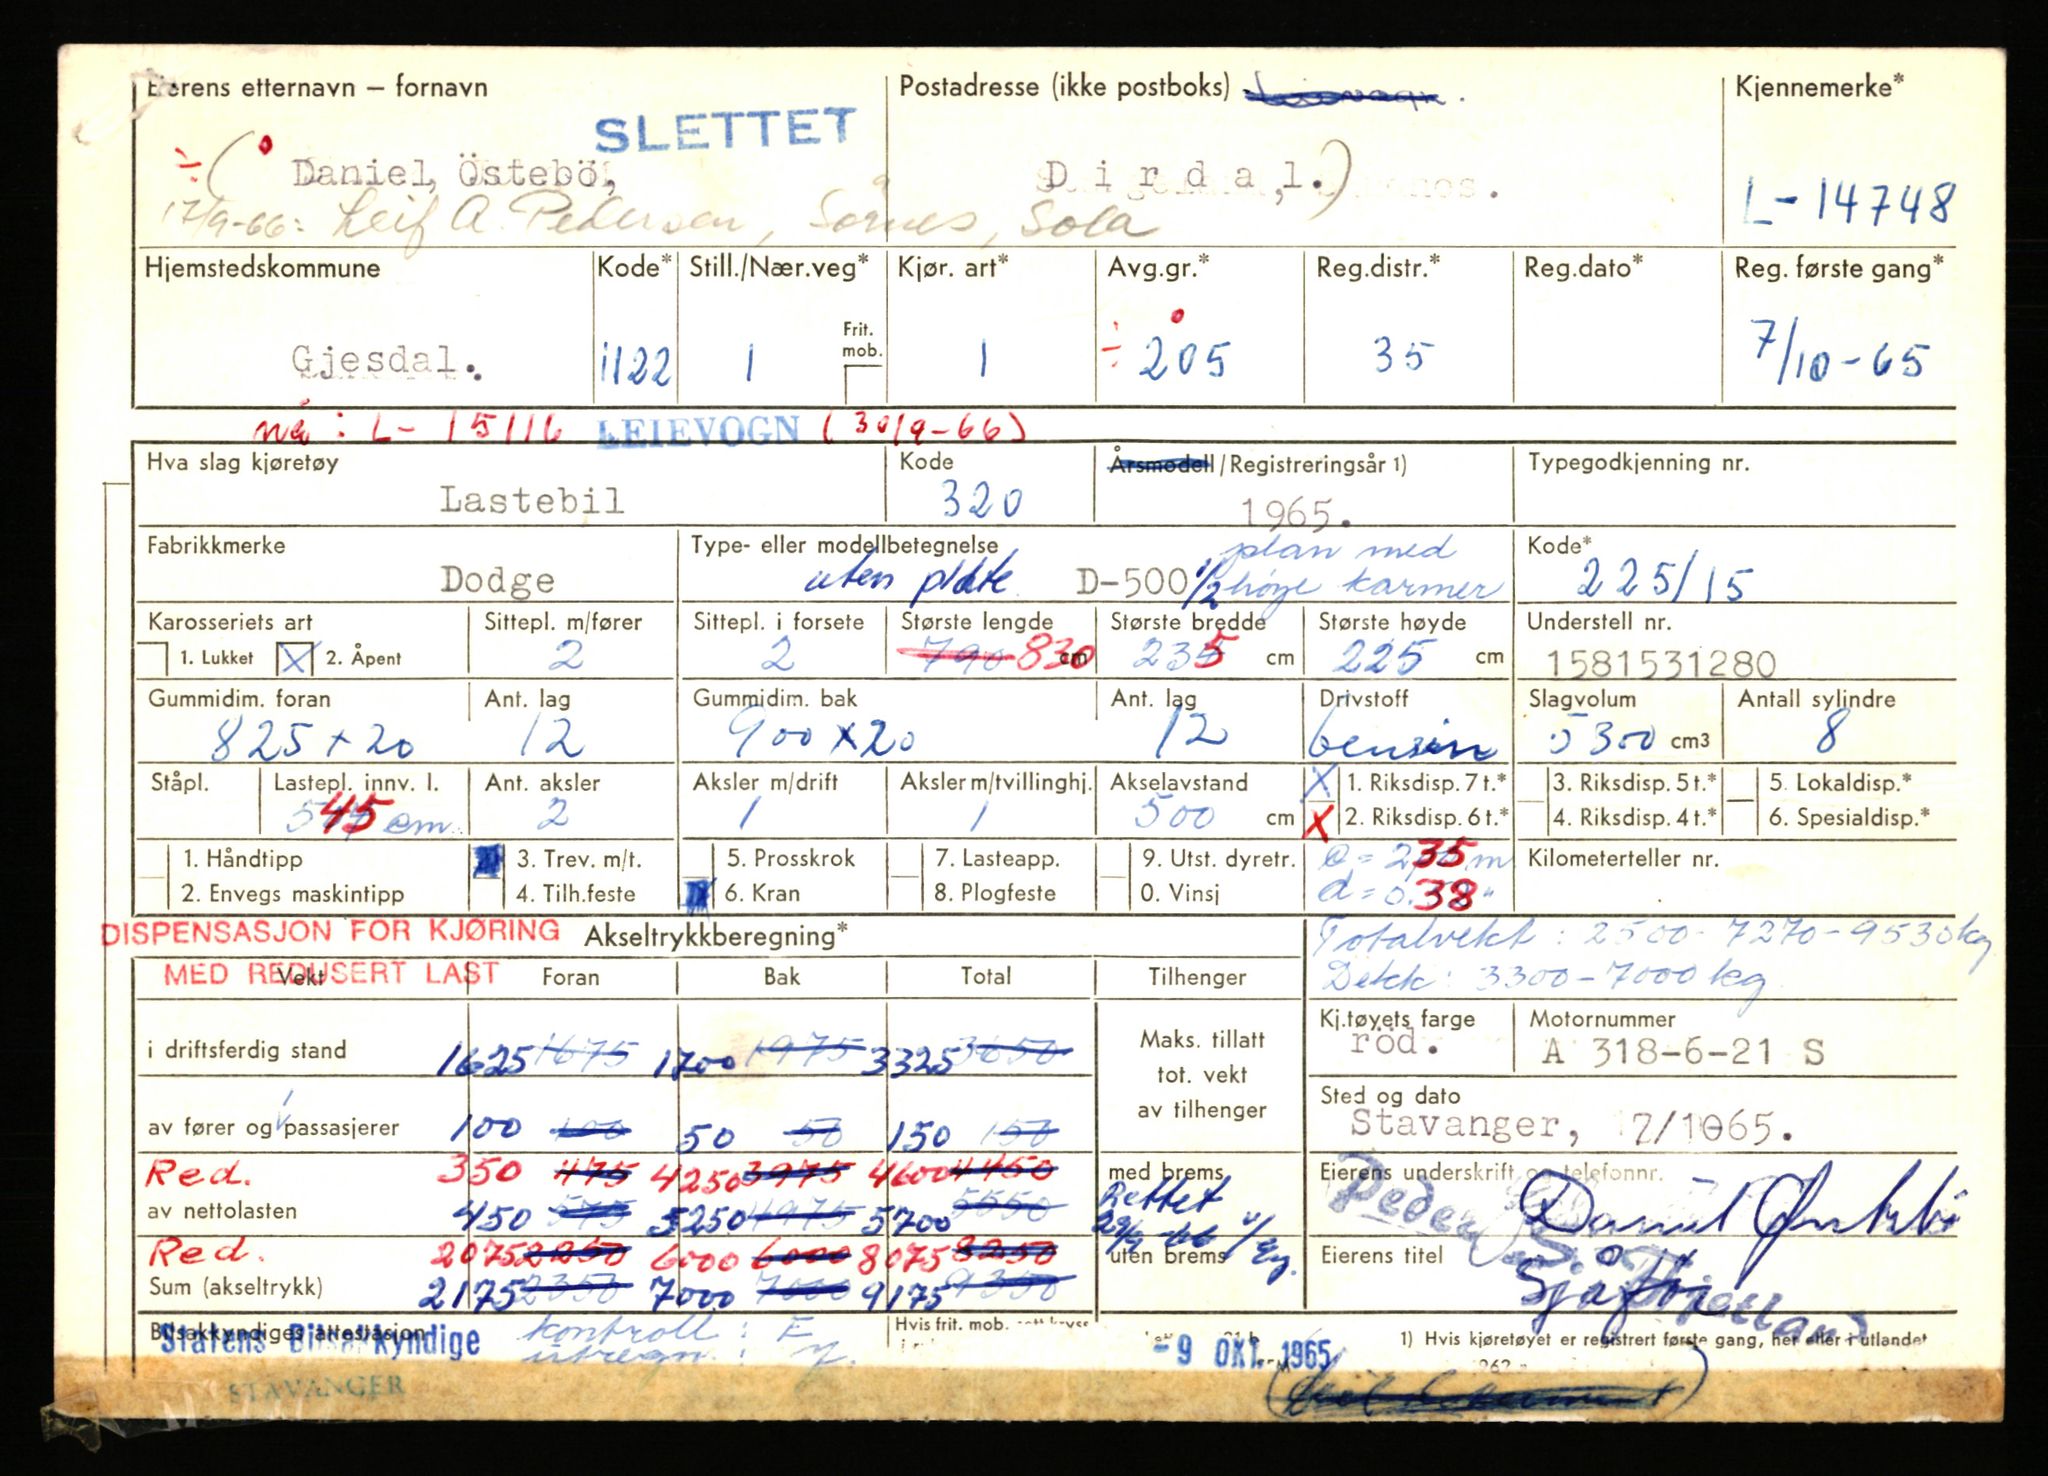 Eierens etternavn – fornavn
SLETTET
Postadresse (ikke postboks)
Kjennemerke*
÷ ( Daniel, Östebö,
D i r d a l. )
L-14748
17/9-66: Leif A Pedersen, Sømes, Sola
Hjemstedskommune Kode* Still./Nær.veg* Kjør. art* Avg.gr.* Reg.distr.* Reg.dato* Reg. første gang*
Frit. mob.
Gjesdal. 1122 1 1 ÷ 205 35 7/10-65
nå: L-15116 LEIEVOGN (30/9-66)
Hva slag kjøretøy Kode Årsmodell/Registreringsår 1) Typegodkjenning nr.
Lastebil 320 1965.
Fabrikkmerke Type- eller modellbetegnelse Kode*
Dodge uten plate D-500 1/2 plan med høye karmer 225/15
Karosseriets art Sittepl. m/fører Sittepl. i forsete Største lengde Største bredde Største høyde Understell nr.
1. Lukket X 2. Åpent 2 2 790 830 cm 235 cm 225 cm 1581531280
Gummidim. foran Ant. lag Gummidim. bak Ant. lag Drivstoff Slagvolum Antall sylindre
825 x 20 12 900 x 20 12 bensin 5300 cm3 8
Ståpl. Lastepl. innv. l. Ant. aksler Aksler m/drift Aksler m/tvillinghj. Akselavstand X 1. Riksdisp. 7 t.* 3. Riksdisp. 5 t.* 5. Lokaldisp.*
545 cm 2 1 1 500 cm X 2. Riksdisp. 6 t.* 4. Riksdisp. 4 t.* 6. Spesialdisp.*
1. Håndtipp 3. Trev. m/t. 5. Prosskrok 7. Lasteapp. 9. Utst. dyretr. = 2,35 m Kilometerteller nr.
2. Envegs maskintipp 4. Tilh.feste 6. Kran 8. Plogfeste 0. Vinsj d = 0.38 "
DISPENSASJON FOR KJØRING Akseltrykkberegning* Totalvekt: 2500-7270-9530 kg
MED REDUSERT LAST
Vekt Foran Bak Total Tilhenger Dekk: 3300-7000 kg
i driftsferdig stand 1625 1675 1700 1975 3325 3650
Maks. tillatt tot. vekt av tilhenger
Kj.tøyets farge Motornummer
röd. A 318-6-21 S
av fører og 1 passasjerer 100 100 50 50 150 150
Sted og dato
Stavanger, 7/1065.
Red. 350 475 4250 3975 4600 4450 med brems
Eierens underskrift og telefonnr.
av nettolasten 450 575 5250 4975 5700 5550 Rettet 29/9-66
Daniel Østebø
Red. 2075 2250 6000 6000 8075 8250 uten brems
Eierens titel
Sum (akseltrykk) 2175 2350 7000 7000 9175 9350
Sjåfør
Bilsakkyndiges attestasjon
Statens Bilsakkyndige
kontroll:
utregn.:
Hvis frit. mob.
-9 OKT. 1965
1) Hvis kjøretøyet er registrert første gang, her eller i utlandet
STAVANGER